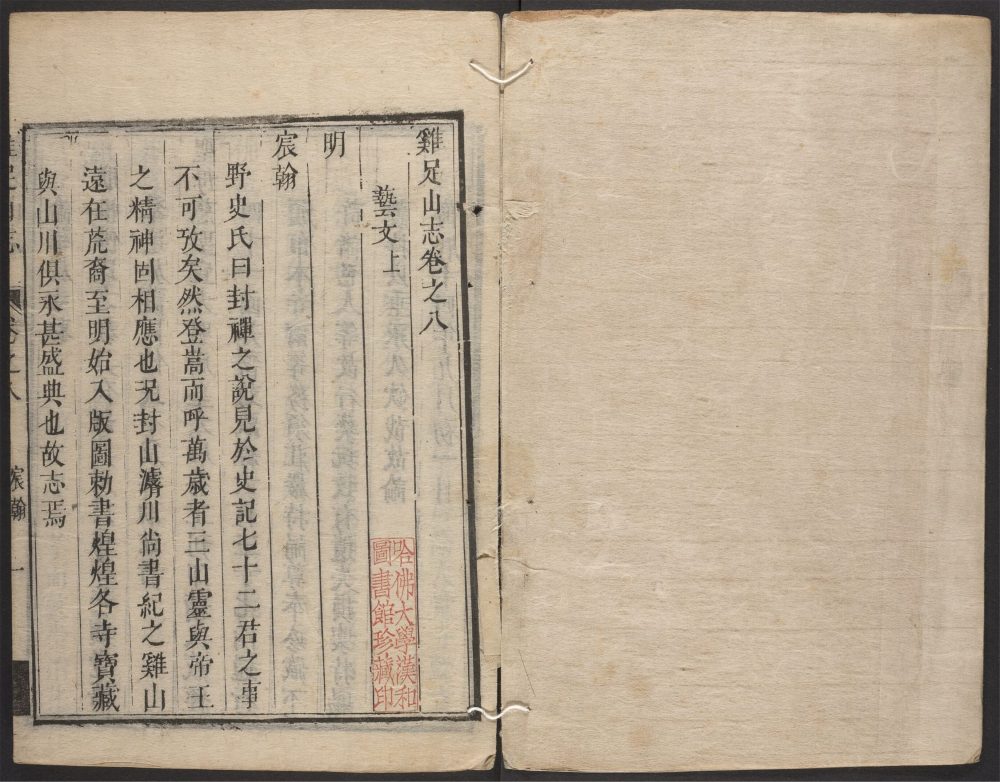 雞足山志卷之八
藝文上
明
宸翰
野史氏曰封禪之說見於史記七十二君之事
不可攷矣然登嵩而呼萬歲者三山靈與帝王
之精神固相應也況封山濬川尙書紀之雞山
遠在荒裔至明始入版圖勅書煌煌各寺寶藏
與山川俱永甚盛典也故志焉
卷之八
宸翰
一
哈佛大學漢和
圖書館珍藏印